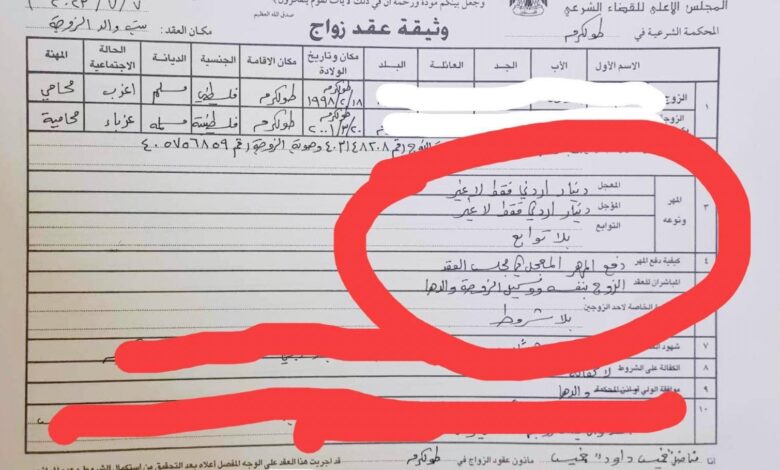 وجعل بينكم مودة ورحمة ان في ذلك لآيات لقوم يتفكرون
صدق الله العظيم
المجلس الأعلى للقضاء الشرعي
المحكمة الشرعية في طولكرم
وثيقة عقد زواج
٢٠٢٣/٧/٧
مكان العقد: بيت والد الزوجة
الاسم الأول الأب الجد العائلة البلد مكان وتاريخ الولادة مكان الاقامة الجنسية الديانة الحالة الاجتماعية المهنة
١ الزوج طولكرم ١٩٩٨/٢/١٨ طولكرم فلسطيني مسلم اعزب محامي
الزوجة طولكرم ٢٠٠١/٣/٢٠ طولكرم فلسطينية مسلمة عزباء محامية
رقم ٤٠٣١٤٨٢٠٨ وهوية الزوجة رقم ٤٠٠٥٧٥٦٨٥٩
٣ المهر ونوعه المعجل دينار اردني فقط لا غير
المؤجل دينار اردني فقط لا غير
التوابع بلا توابع
٤ كيفية دفع المهر دفع المهر المعجل في مجلس العقد
المباشران للعقد الزوج بنفسه ووكيل الزوجة والدها
الخاصة لاحد الزوجين بلا شروط
٧ شهود
٨ الكفالة على الشروط لا كفالة
٩ موافقة الولي او اذن المحكمة والدها
١٠
انا مأذون عقود الزواج في طولكرم قد اجريت هذا العقد على الوجه المفصل أعلاه بعد التحقيق من استكمال الشروط